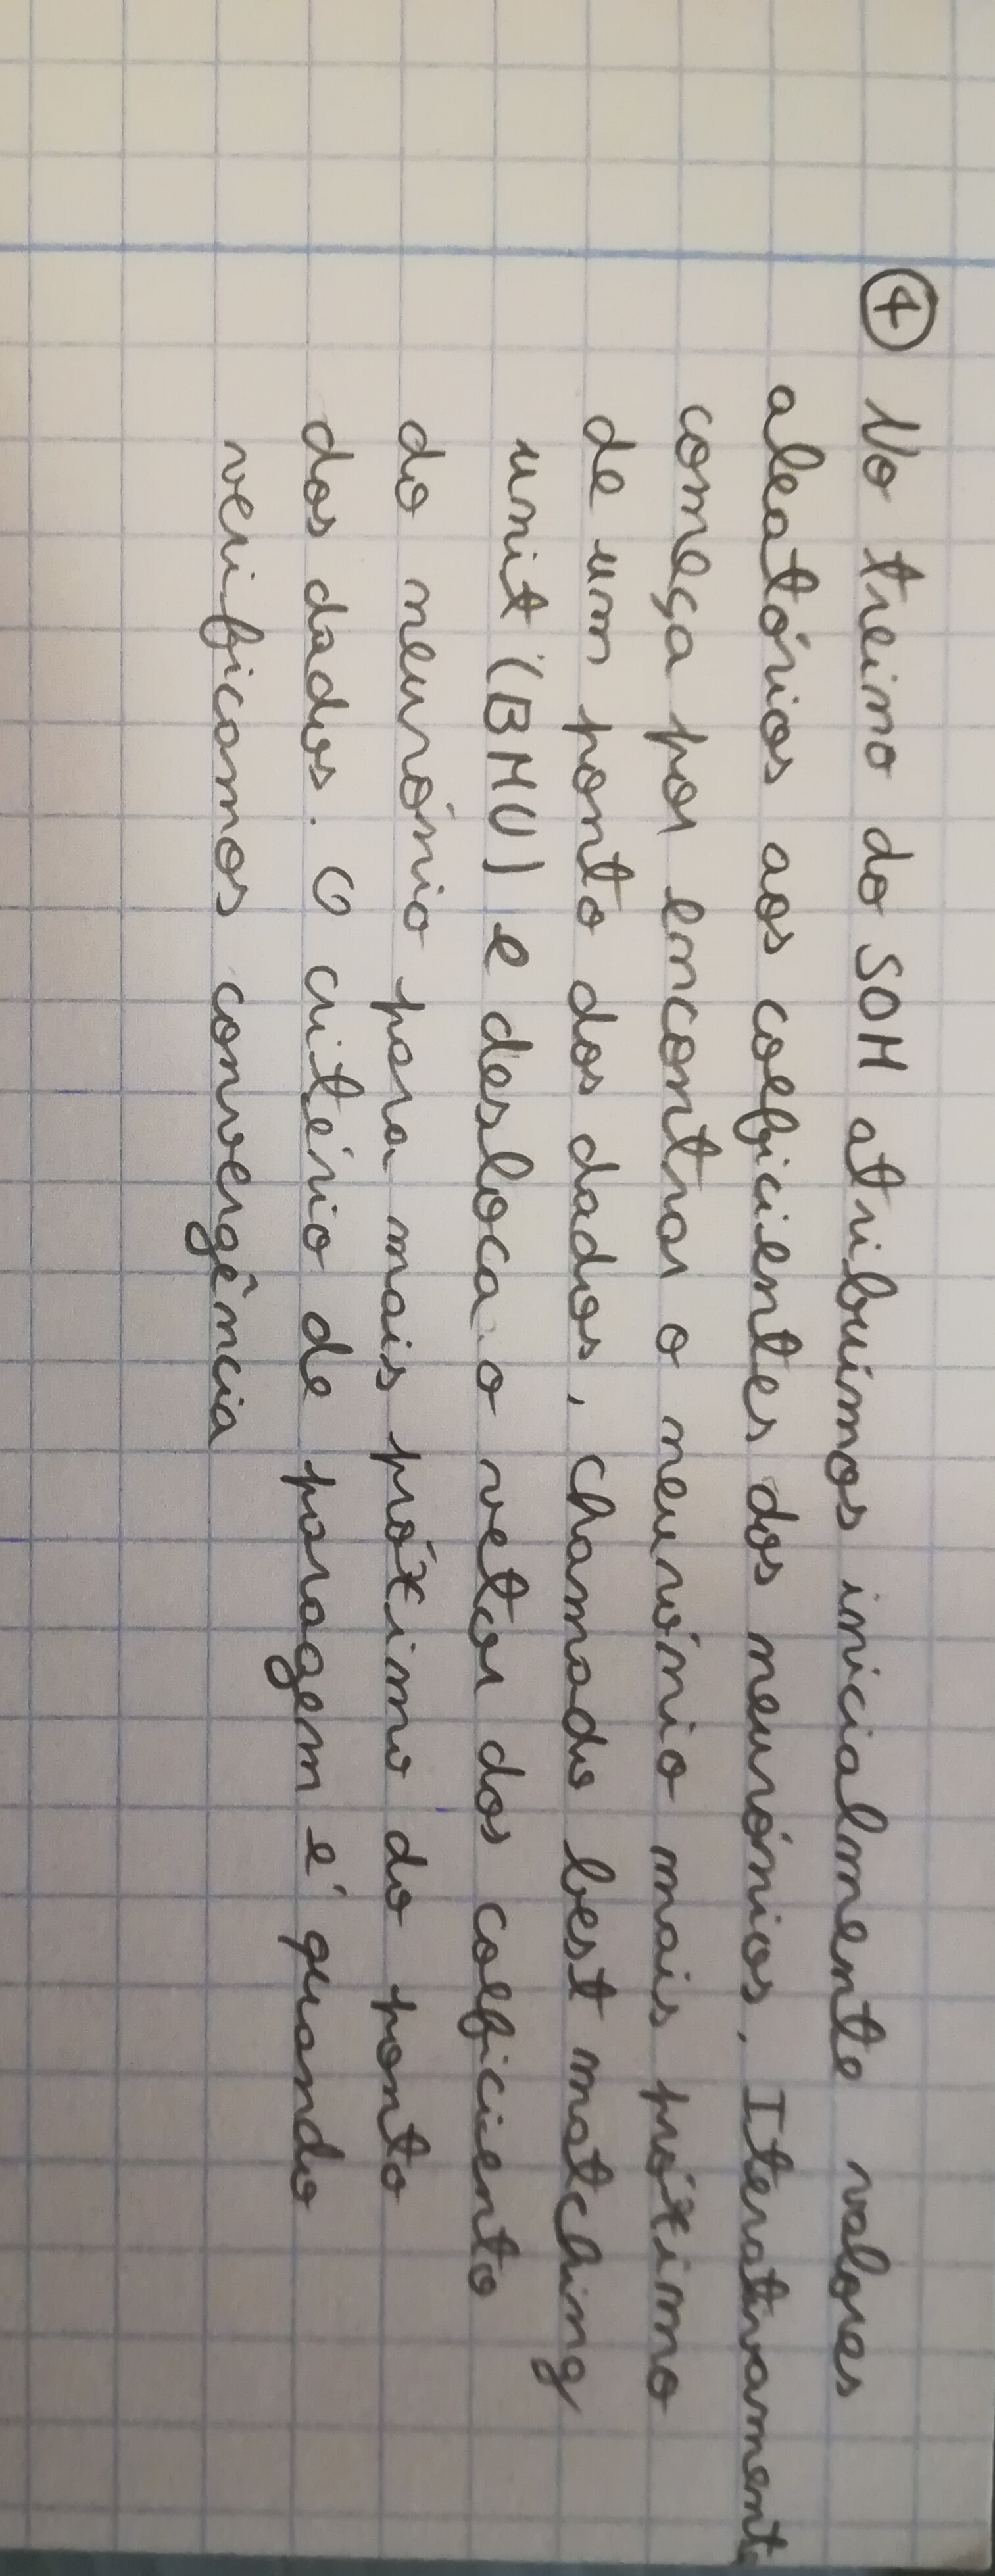 ④ No treino do SOM atribuímos inicialmente valores
aleatórios aos coeficientes dos neurónios. Iterativamente
começa por encontrar o neurónio mais próximo
de um ponto dos dados, chamado best matching
unit (BMU) e desloca o vetor dos coeficiento
do neurónio para mais próximo do ponto
dos dados. O critério de paragem é quando
verificamos convergência